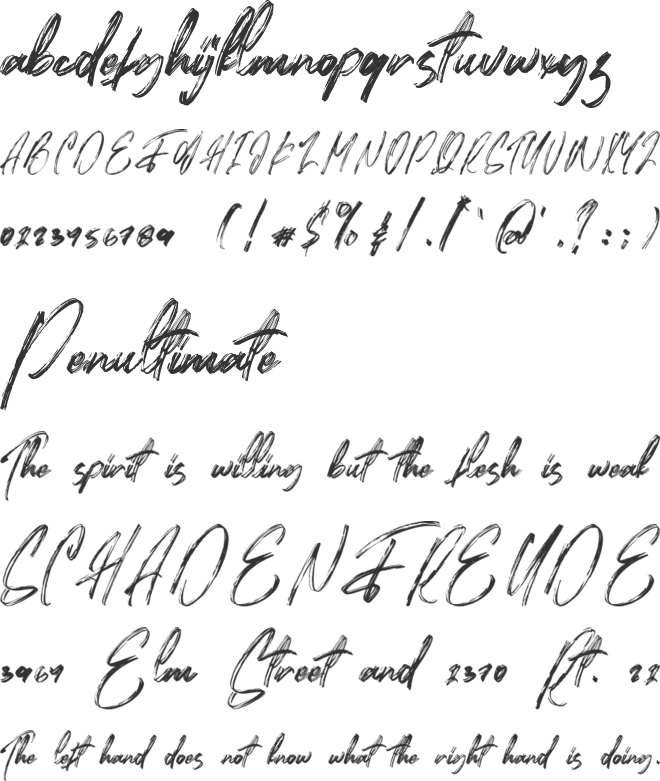 abcdefghijklmnopqrstuvwxyz
ABCDEFGHIJKLMNOPQRSTUVWXYZ
0123456789 ( ! # $ % & / . \ * ` @ ' . ? : ; )
Penultimate
The spirit is willing but the flesh is weak
SCHADENFREUDE
3964 Elm Street and 2370 Rt. 22
The left hand does not know what the right hand is doing.